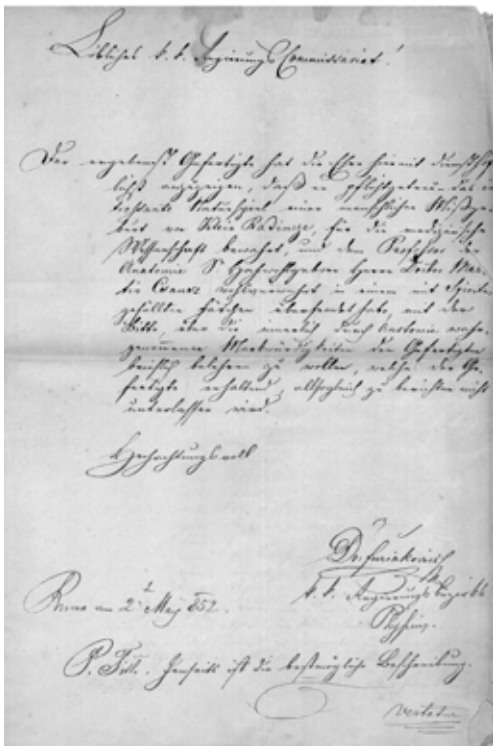 Löbliches k. k. Regierungs Commissariat!
Der ergebenst Gefertigte hat die Ehre hiermit
anzuzeigen, daß er pflichtgetreu das
Naturspiel einer menschlichen Mißge-
burt von Klein , für die medizinische
Wissenschaft bewahrt, und dem Professor der
Anatomie Sr Hochwohlgeboren Herrn Doctor
wohlverwahrt in einem mit Spiritus
gefüllten Fäßchen übersendet habe, mit der
Bitte, über die innerlich durch Anatomie wahr-
genommenen Merkwürdigkeiten den Gefertigten
brieflich belehren zu wollen, welche der Ge-
fertigte erhaltend, allsogleich zu berichten nicht
unterlassen wird.
Hochachtungsvoll
Dr
k. k. Regierungs Bezirks
Physicus.
am 2t May 852.
P. Fitt. Jenseits ist die bestmögliche Beschreibung.